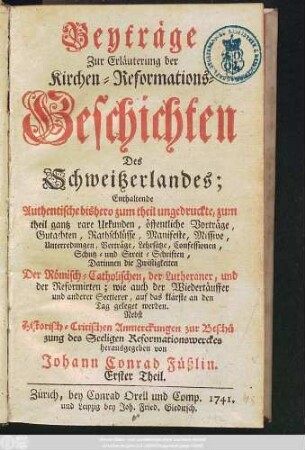 Beyträge
Zur Erläuterung der
Kirchen-Reformations-
Geschichten
Des
Schweitzerlandes;
Enthaltende
Authentische bishero zum theil ungedruckte, zum
theil gantz rare Urkunden, öffentliche Vorträge,
Gutachten, Rathschlüsse, Manifeste, Missive,
Unterredungen, Verträge, Lehrsätze, Confessionen,
Schutz- und Streit-Schriften,
Darinnen die Zwistigkeiten
Der Römisch-Catholischen, der Lutheraner, und
der Reformirten; wie auch der Wiedertäuffer
und anderer Sectierer, auf das klärste an den
Tag geleget werden.
Nebst
Historisch-Critischen Anmerckungen zur Beschü
zung des Seeligen Reformationswerckes
herausgegeben von
Johann Conrad Füßlin.
Erster Theil.
Zürich, bey Conrad Orell und Comp. 1741.
und Leipzig bey Joh. Fried. Gleditsch.